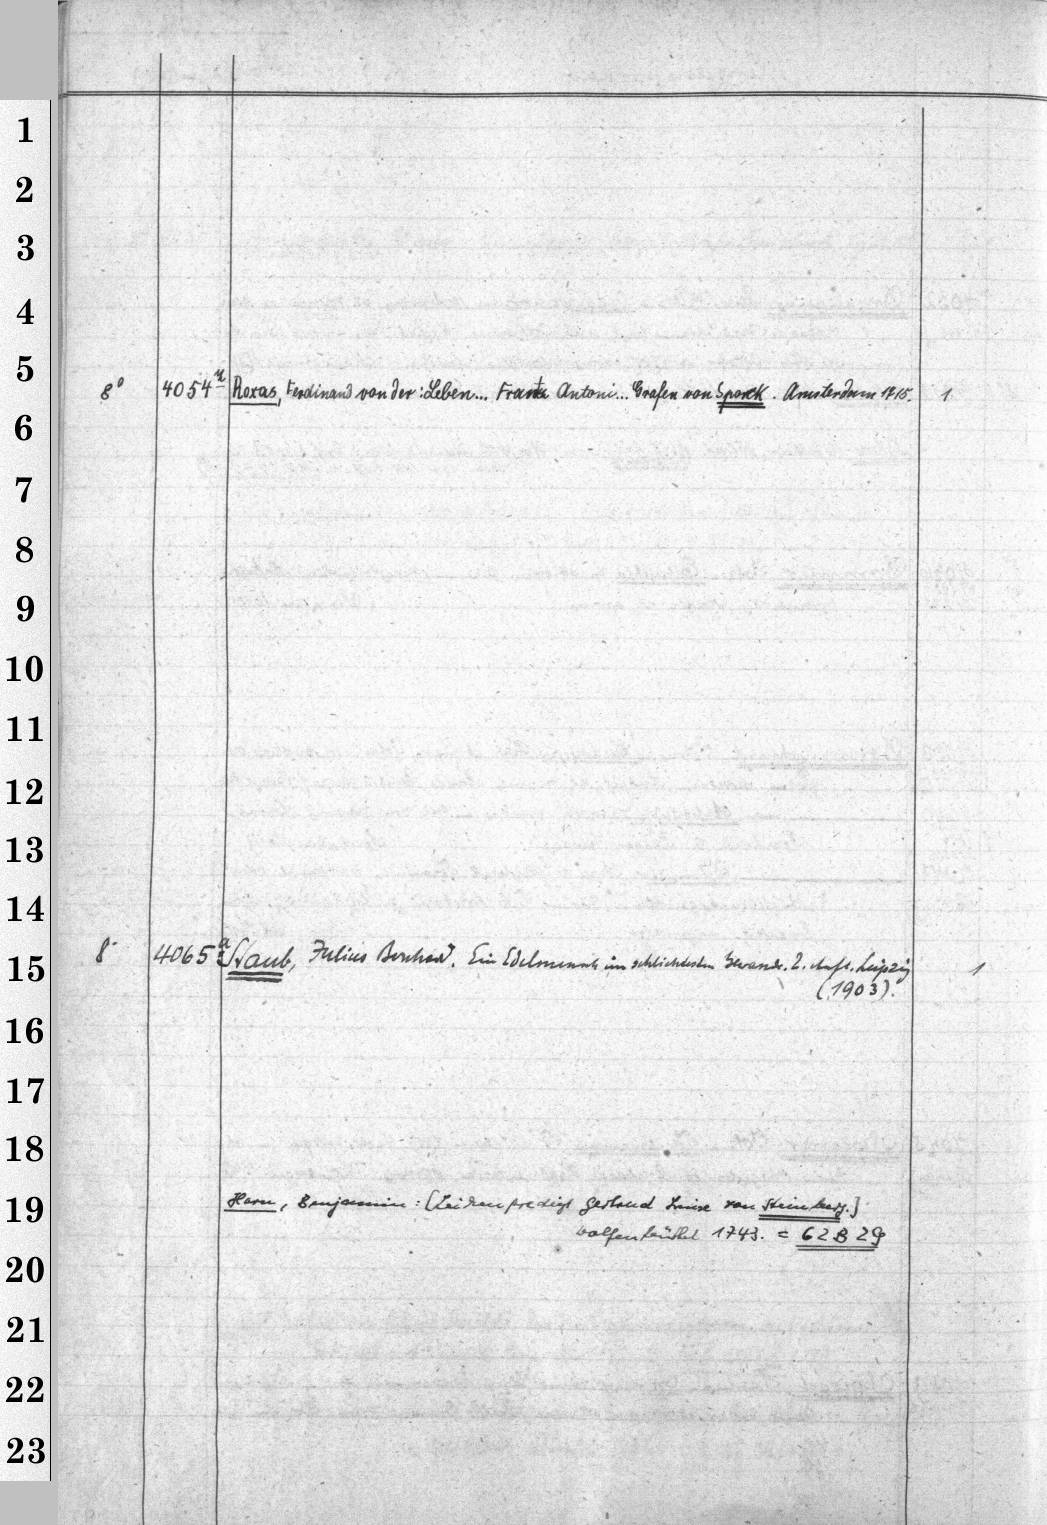 1
2
3
4
5
8° 4054ᵘ Roxas, Ferdinand von der: Leben... Frantz Antoni... Grafen von Sporck. Amsterdam 1715. 1
6
7
8
9
10
11
12
13
14
8° 4065ᵃ Staub, Julius Bernhard. Ein Edelmensch im schlichtesten Gewande. 2. Aufl. Leipzig 1
15
(1903).
16
17
18
19
Horn, Benjamin: [Leichenpredigt Gertrud Luise von Steinberg.]
Wolfenbüttel 1743. = 62 B 29
20
21
22
23